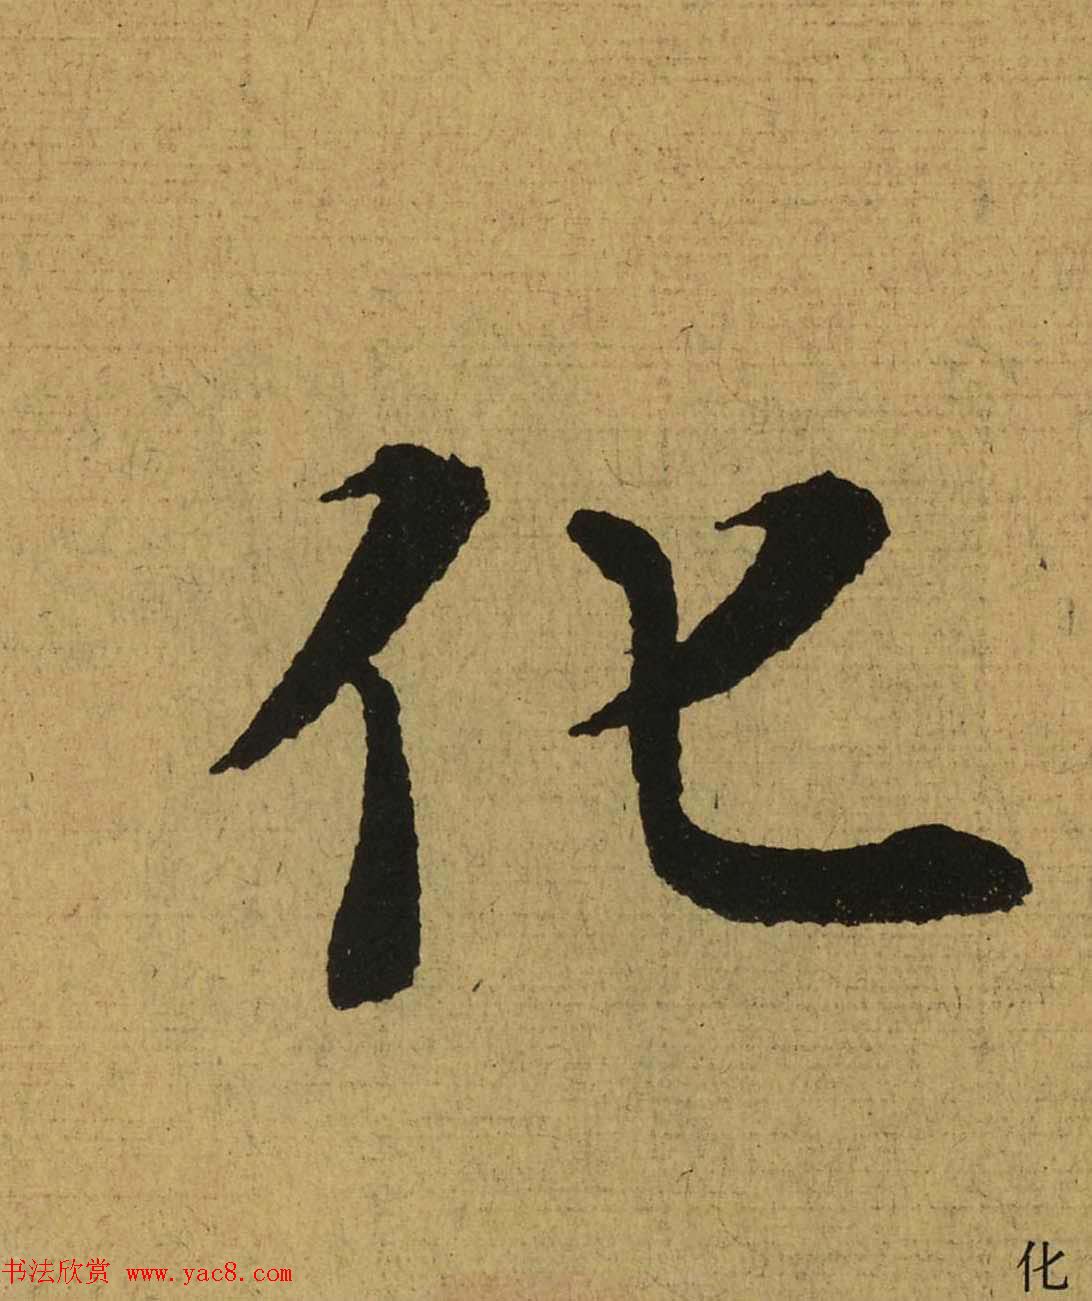 化
书法欣赏 www.yac8.com
化